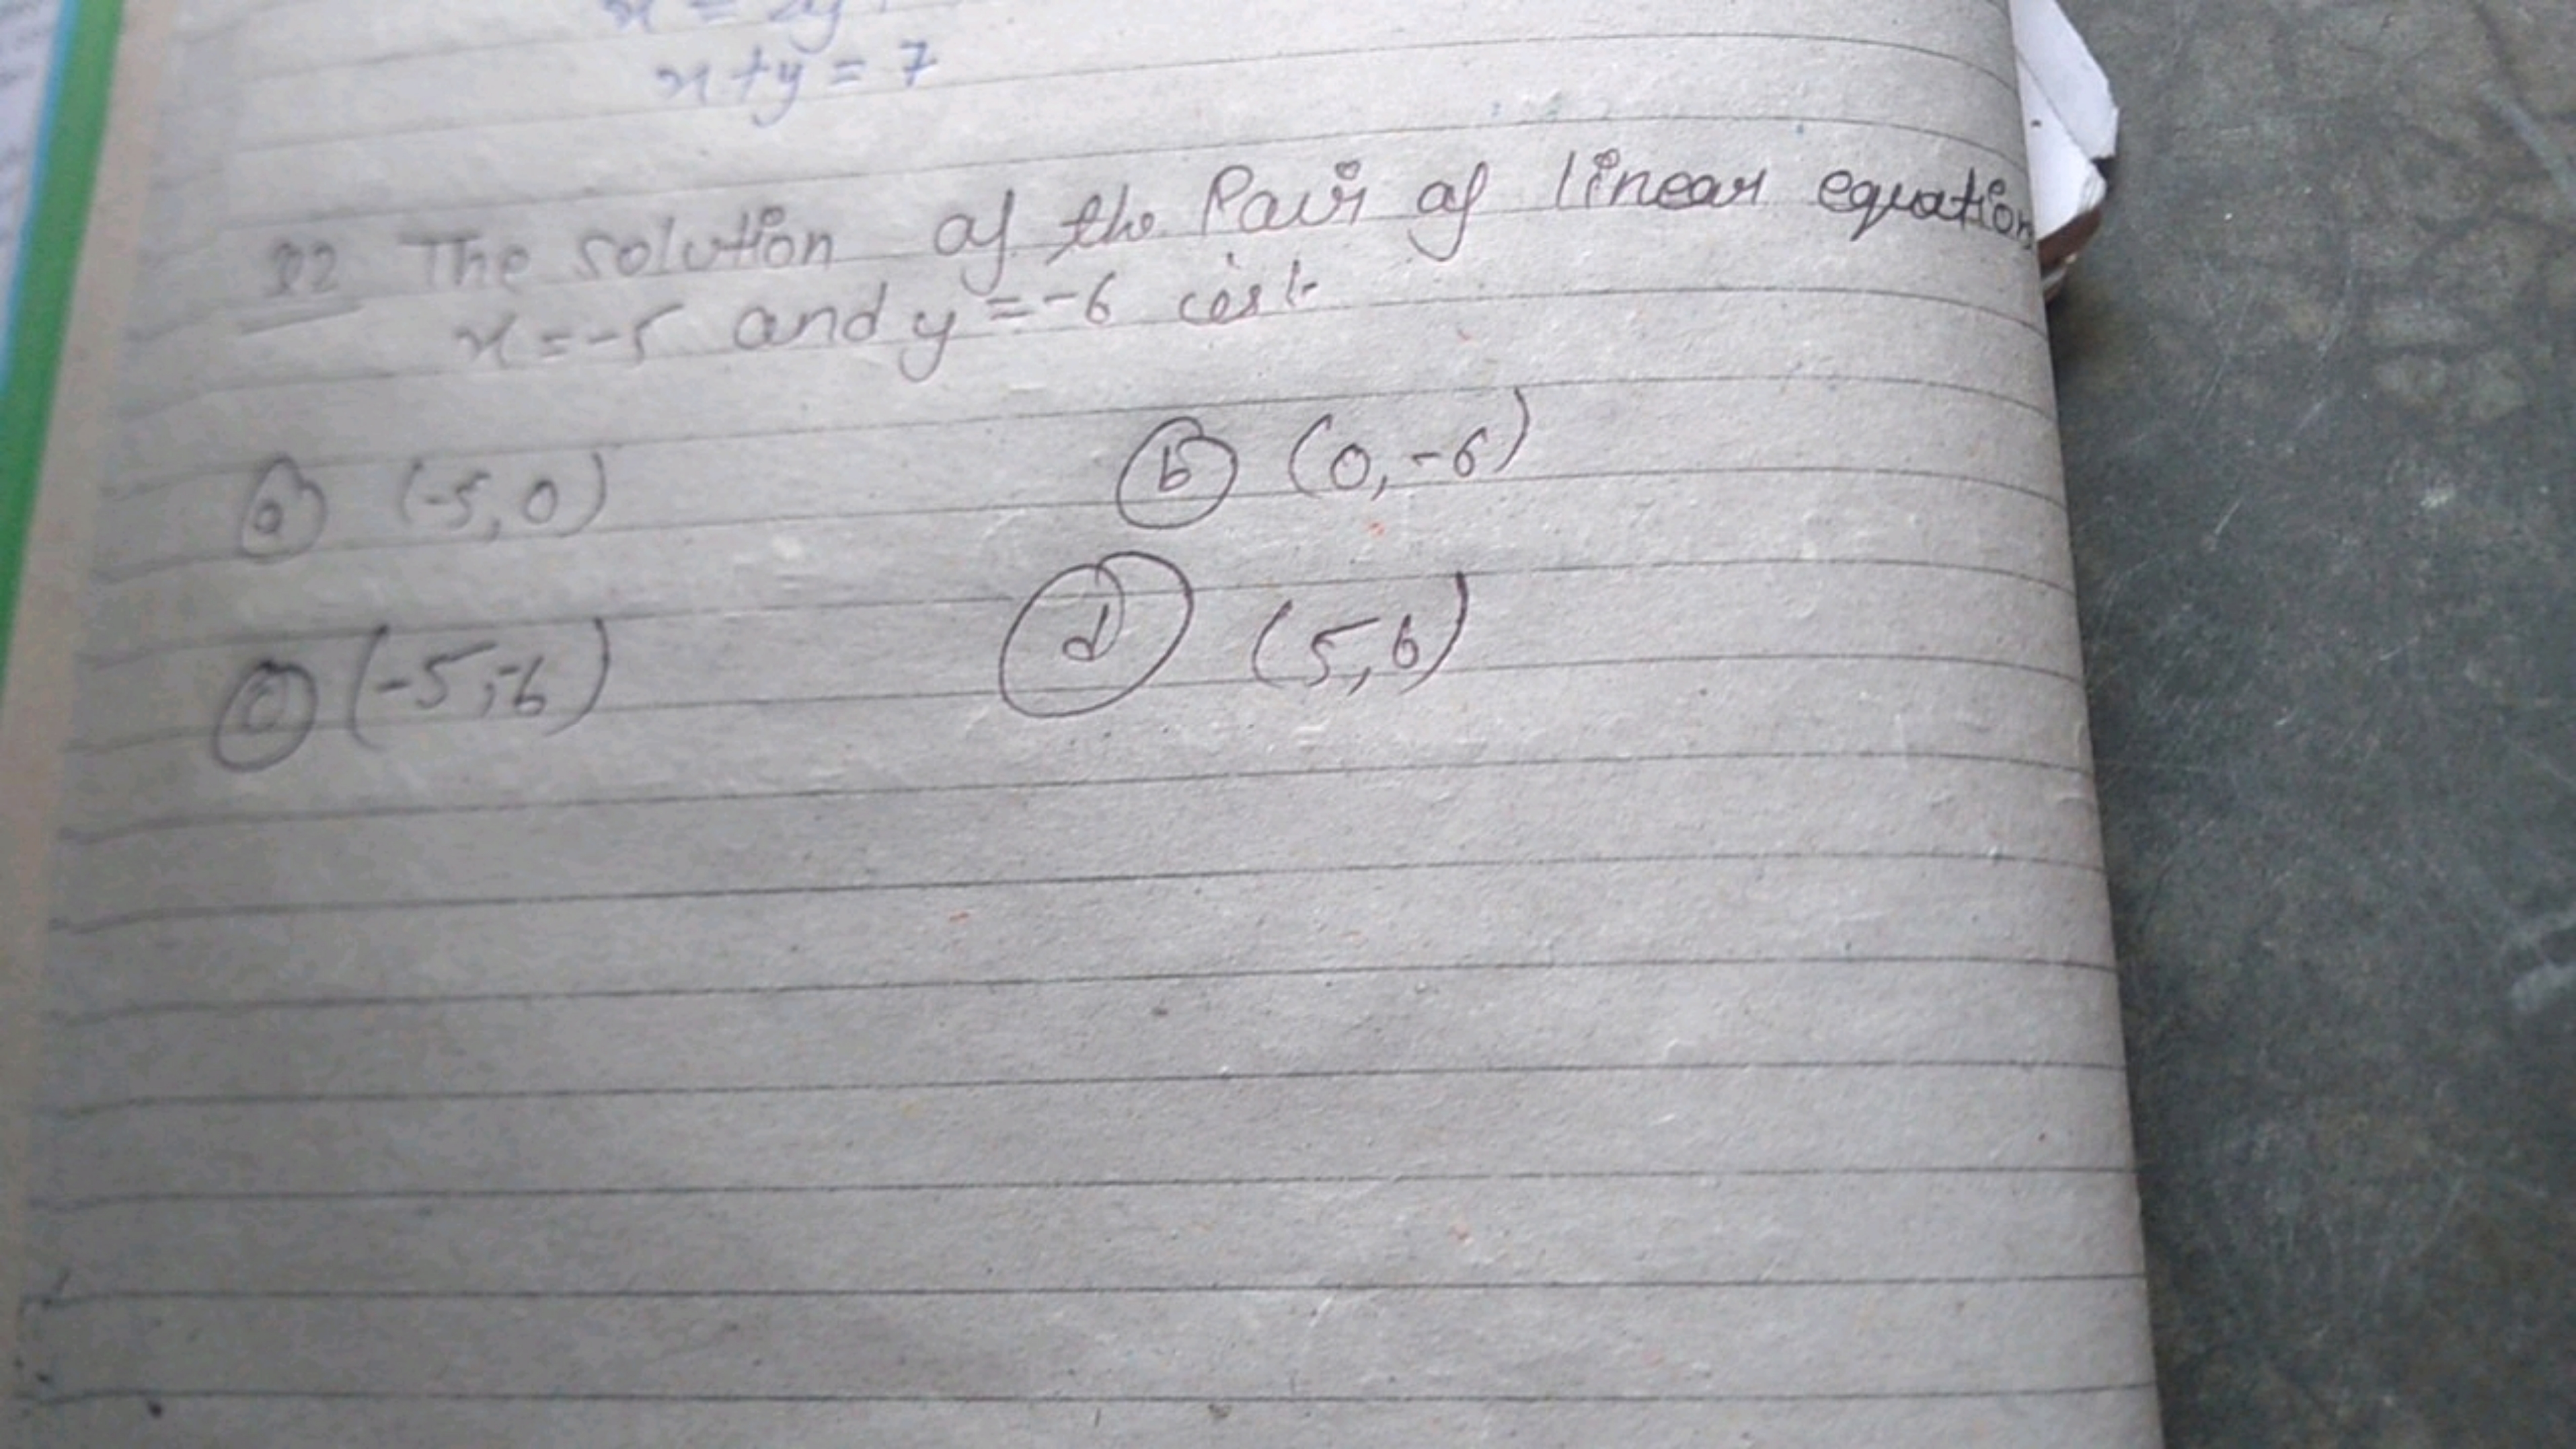 x = 2y
x + y = 7
Q2 The solution of the Pair of linear equation
x = -5 and y = -6 is :-
(a) (-5, 0)
(b) (0, -6)
(c) (-5, -6)
(d) (5, 6)